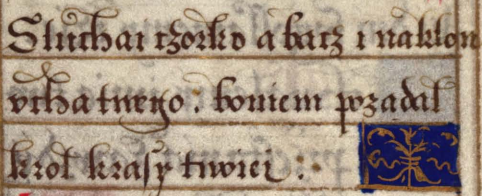 Sluchai czorko a bacz i naklon
vcha twego : boniem pozadal
krol krasy twiei :